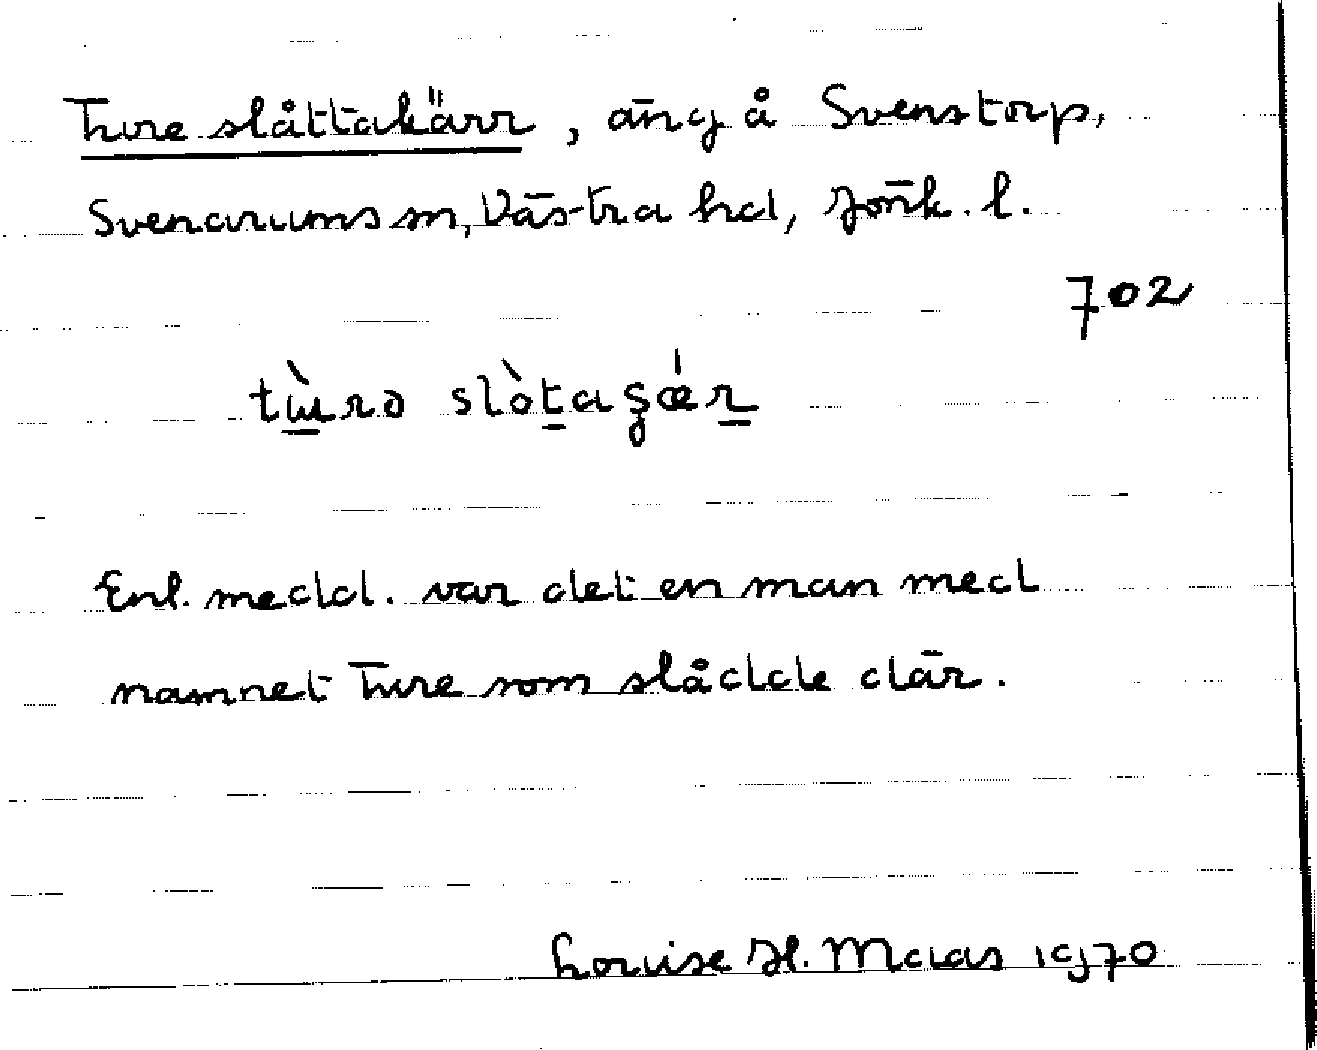 Ture slåttakärr, äng å Svenstorp,
Svenarums sn, Västra hd, Jönk. l.
702
tùrə slòtaʂǽr
Enl. medd. var det en man med
namnet Ture som slådde där.
Louise H. Maas 1970